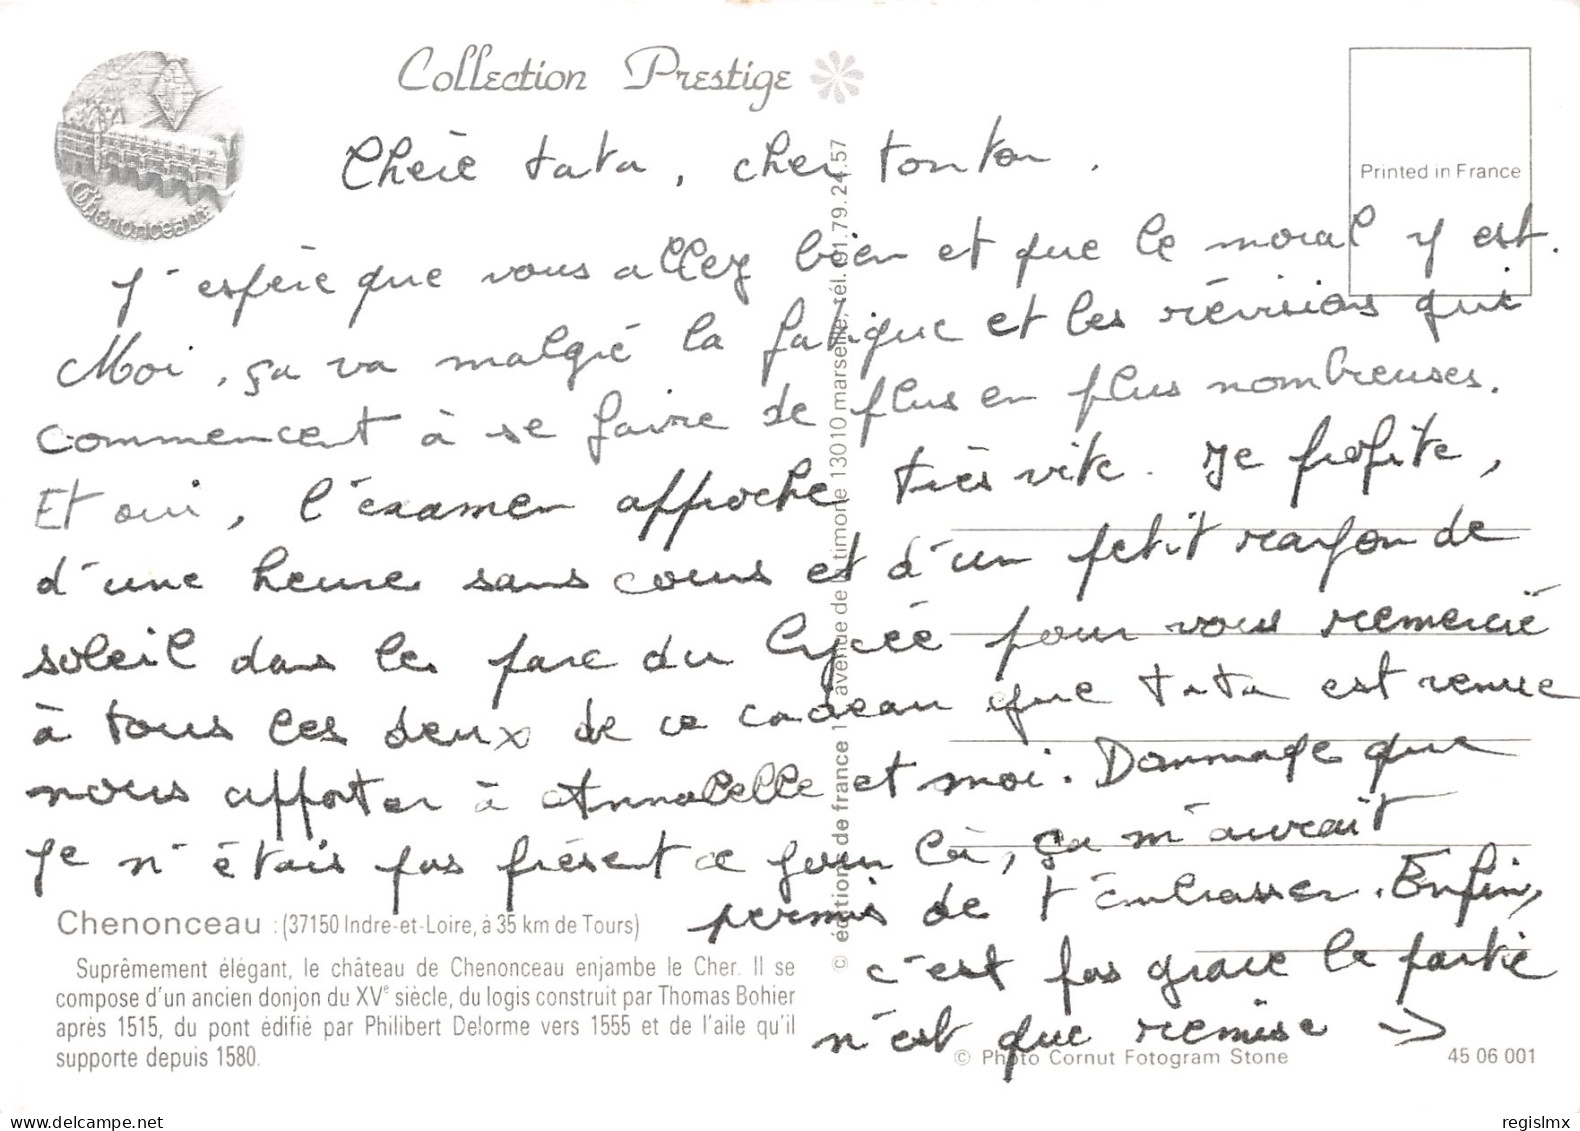 Collection Prestige
Chenonceaux
Printed in France
Chère tata, cher tonton.
J'espère que vous allez bien et que le moral y est.
Moi, ça va malgré la fatigue et les révisions qui
commencent à se faire de plus en plus nombreuses.
Et oui, l'examen approche très vite. Je profite,
d'une heure sans cours et d'un petit rayon de
soleil dans le parc du lycée pour vous remercié
à tous les deux de ce cadeau que tata est venue
nous apporter à Annabelle et moi. Dommage que
je n'étais pas présent ce jour là, ça m'aurait
permis de t'embrasser. Enfin,
c'est pas grave la partie
n'est que remise →
Chenonceau : (37150 Indre-et-Loire, à 35 km de Tours)
Suprêmement élégant, le château de Chenonceau enjambe le Cher. Il se
compose d'un ancien donjon du XVe siècle, du logis construit par Thomas Bohier
après 1515, du pont édifié par Philibert Delorme vers 1555 et de l'aile qu'il
supporte depuis 1580.
© édition de france 1 avenue de timone 13010 marseille, tél. 91.79.24.57
© Photo Cornut Fotogram Stone
45 06 001
regislmx